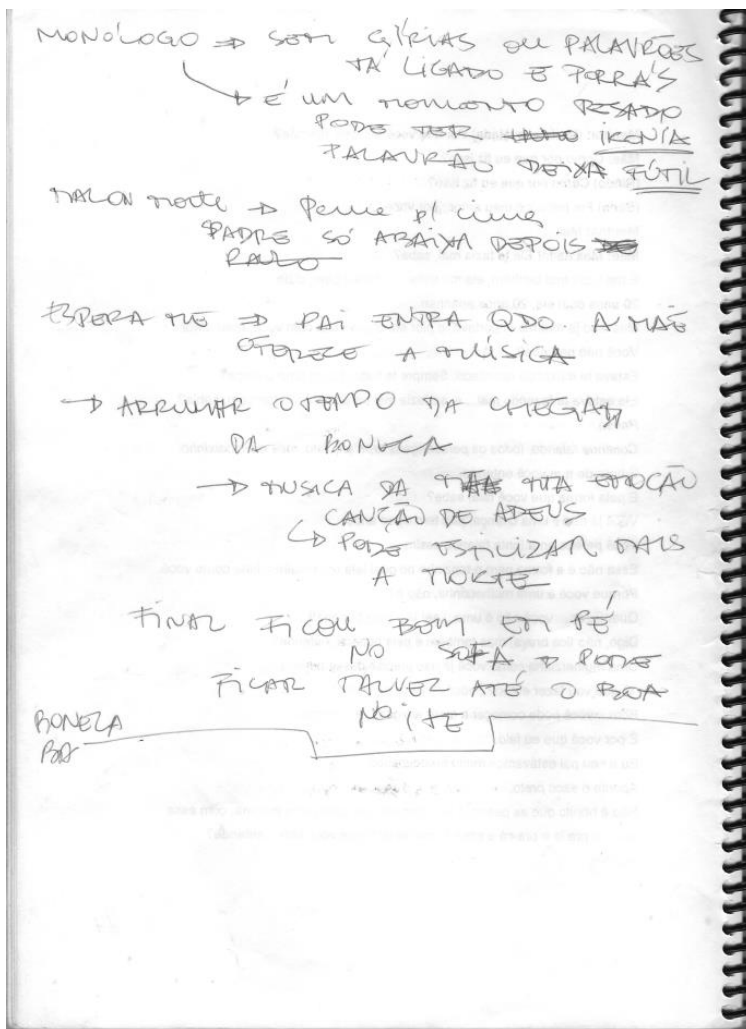 MONÓLOGO → SEM GÍRIAS OU PALAVRÕES
TÁ LIGADO E PORRA'S
→ É UM MOMENTO PESADO
PODE TER IRONIA
PALAVRÃO DEIXA FÚTIL
MALON MORTE → Perna p/ cima
PADRE SÓ ABAIXA DEPOIS
ESPERA ME → PAI ENTRA QDO A MÃE
OFERECE A MÚSICA
→ ARRUMAR O TEMPO DA CHEGADA
DA BONECA
→ MUSICA DA MÃE MTA EMOÇÃO
CANÇÃO DE ADEUS
↳ PODE ESTILIZAR MAIS
A MORTE
FINAL FICOU BOM EM PÉ
NO SOFÁ → PODE
FICAR TALVEZ ATÉ O BOA
NOITE
BONECA